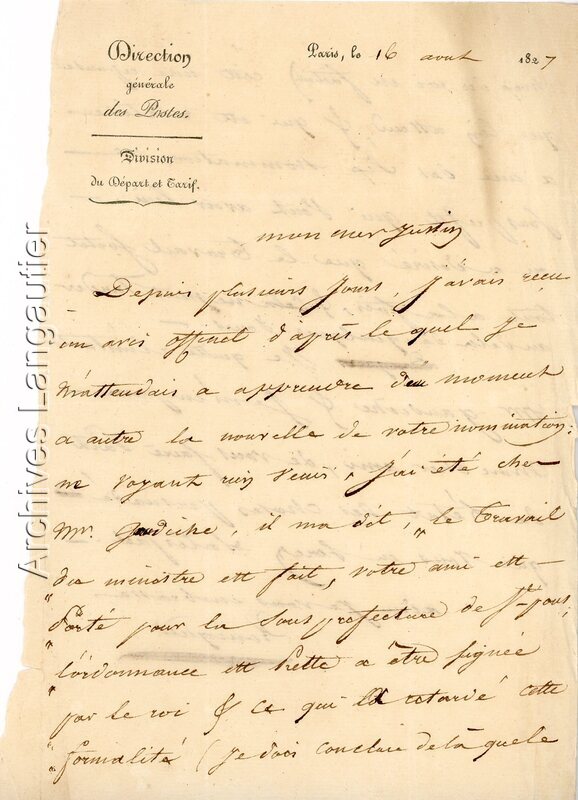 Direction
générale
des Postes.
Division
du Départ et Tarif.
Paris, le 16 aout 1827
mon cher Justin
Depuis plusieurs jours, j'avais reçu
un avis officiel d'après le quel je
m'attendais a apprendre d'un moment
a autre la nouvelle de votre nomination;
ne voyant rien venir, j'ai été chez
Mr. il m'a dit, " le travail
du ministre est fait, votre ami est
" Porté pour la sous prefecture de St-pons,
" l'ordonnance est Prette a être signée
" par le roi & ce qui a retardé cette
" formalité (je dois conclure de là que le
Archives Langautier